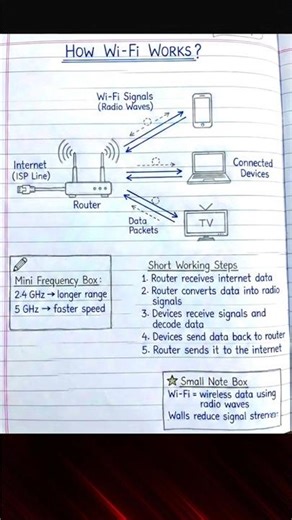 How Wi-Fi Works?
Wi-Fi Signals
(Radio Waves)
Internet
(ISP Line)
Router
Connected
Devices
Data
Packets
TV
Mini Frequency Box:
2.4 GHz → longer range
5 GHz → faster speed
Short Working Steps
1. Router receives internet data
2. Router converts data into radio
signals
3. Devices receive signals and
decode data
4. Devices send data back to router
5. Router sends it to the internet
Small Note Box
Wi-Fi = wireless data using
radio waves
Walls reduce signal